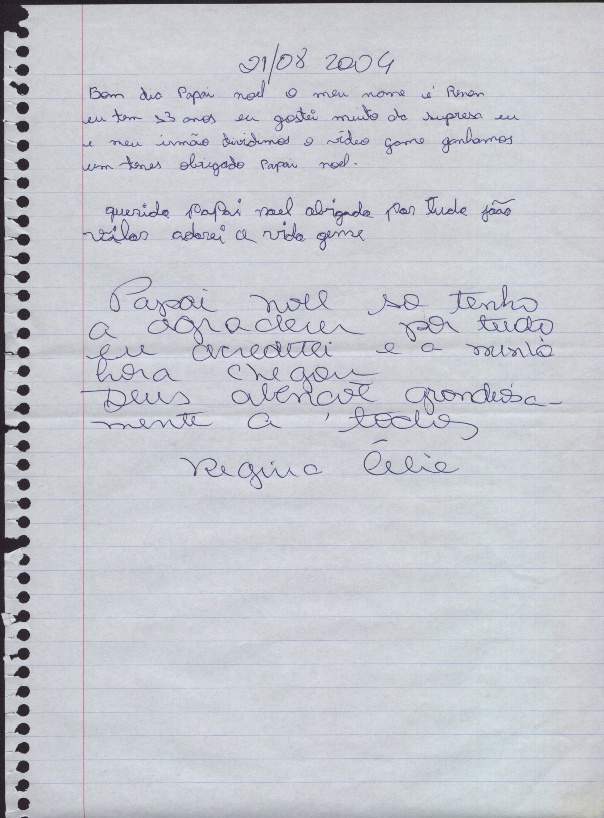 21/08 2004
Bom dia Papai noel o meu nome é Renan
eu tem 13 anos eu gostei muito da supresa eu
e meu irmão dividimos o video game ganhamos
um tenes obrigado Papai noel.
querido papai noel obrigado por tudo joão
adorei o vido geme
Papai noel so tenho
a agradecer por tudo
eu acreditei e a minha
hora chegou
Deus abençoê grandiosa-
mente a todos
Regina Célia